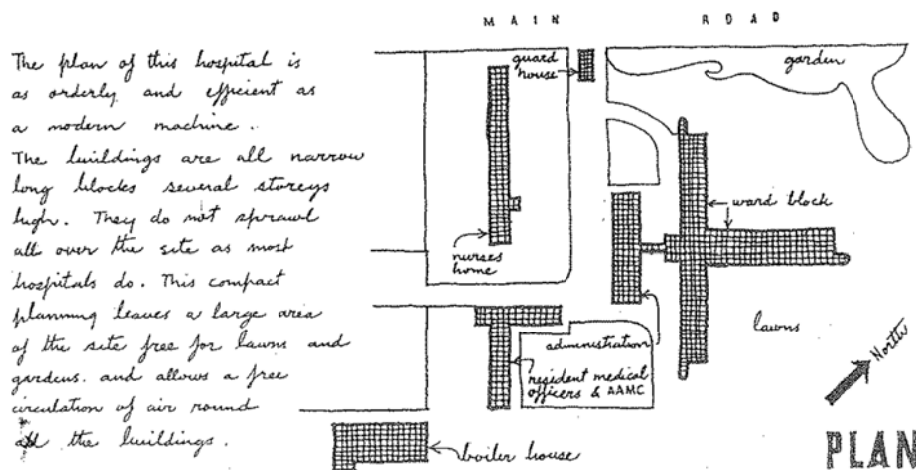 MAIN ROAD
The plan of this hospital is
as orderly and efficient as
a modern machine.
The buildings are all narrow
long blocks several storeys
high. They do not sprawl
all over the site as most
hospitals do. This compact
planning leaves a large area
of the site free for lawns and
gardens. and allows a free
circulation of air round
all the buildings.
guard
house
garden
ward block
nurses
home
administration
lawns
resident medical
officers & AAMC
boiler house
North
PLAN